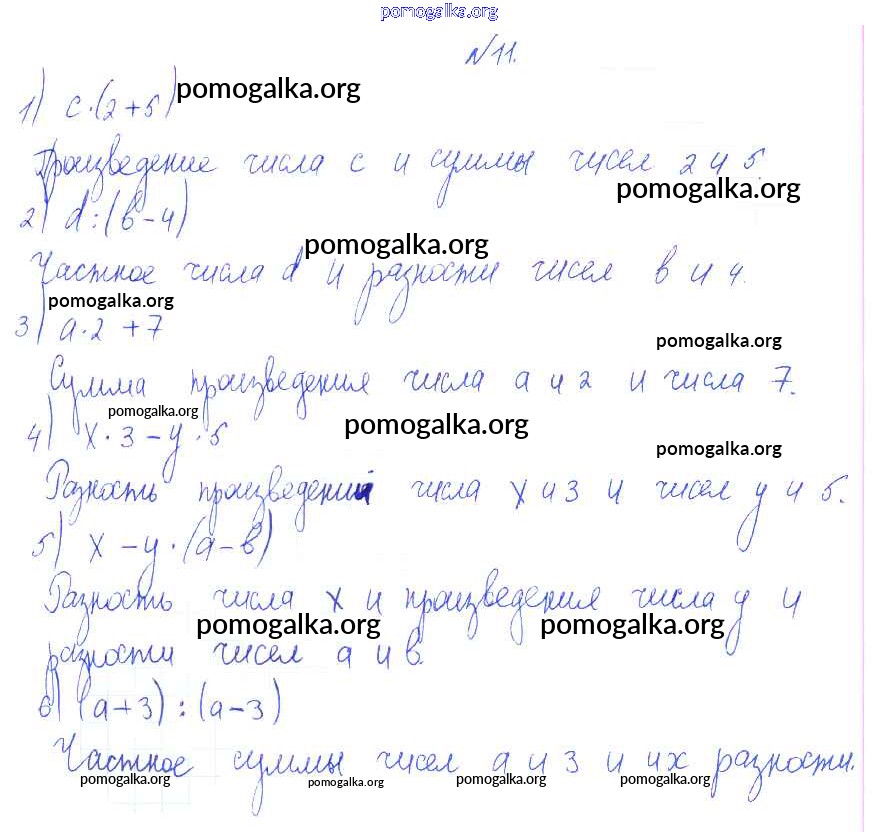 pomogalka.org
№11.
1) c·(2+5) pomogalka.org
Произведение числа c и суммы чисел 2 и 5.
pomogalka.org
2) d:(b-4)
pomogalka.org
Частное числа d и разности чисел b и 4.
pomogalka.org
3) a·2+7
pomogalka.org
Сумма произведения числа a и 2 и числа 7.
pomogalka.org pomogalka.org
4) x·3-y·5
pomogalka.org
Разность произведений числа x и 3 и чисел y и 5.
5) x-y·(a-b)
Разность числа x и произведения числа y и
pomogalka.org pomogalka.org
разности чисел a и b.
6) (a+3):(a-3)
Частное суммы чисел a и 3 и их разности.
pomogalka.org pomogalka.org pomogalka.org pomogalka.org